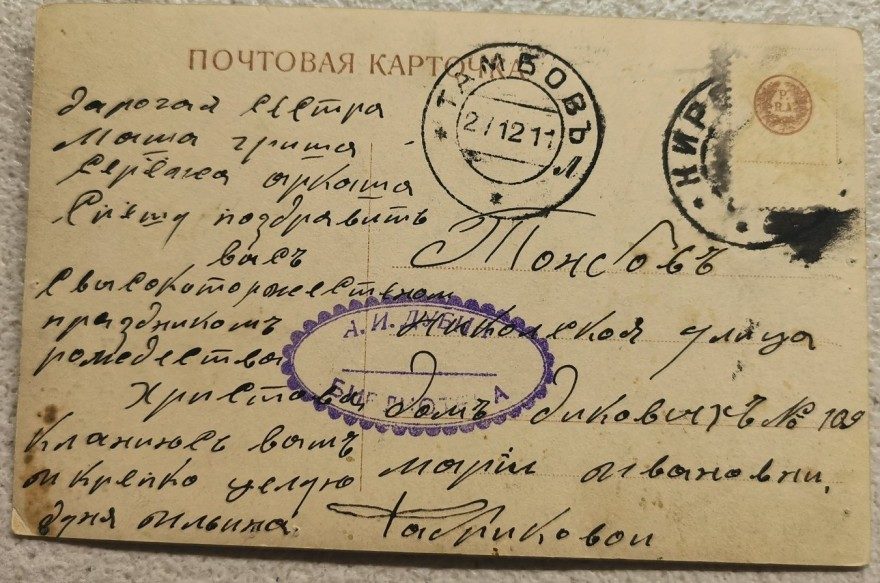 ПОЧТОВАЯ КАРТОЧКА
ТАМБОВЪ
2/1211
Л
КИР
дарогая сестра
маша гриша
серёжа аркаша
Спешу поздравить
васъ
свысокоторжественом
праздникомъ
рождества
Христова
кланиюсь вамъ
и крепко целую
дуня ильина
А. И.
Тонбовъ
Никольской улица
домъ диковыхъ № 109
марiи ивановни
Фабриковой